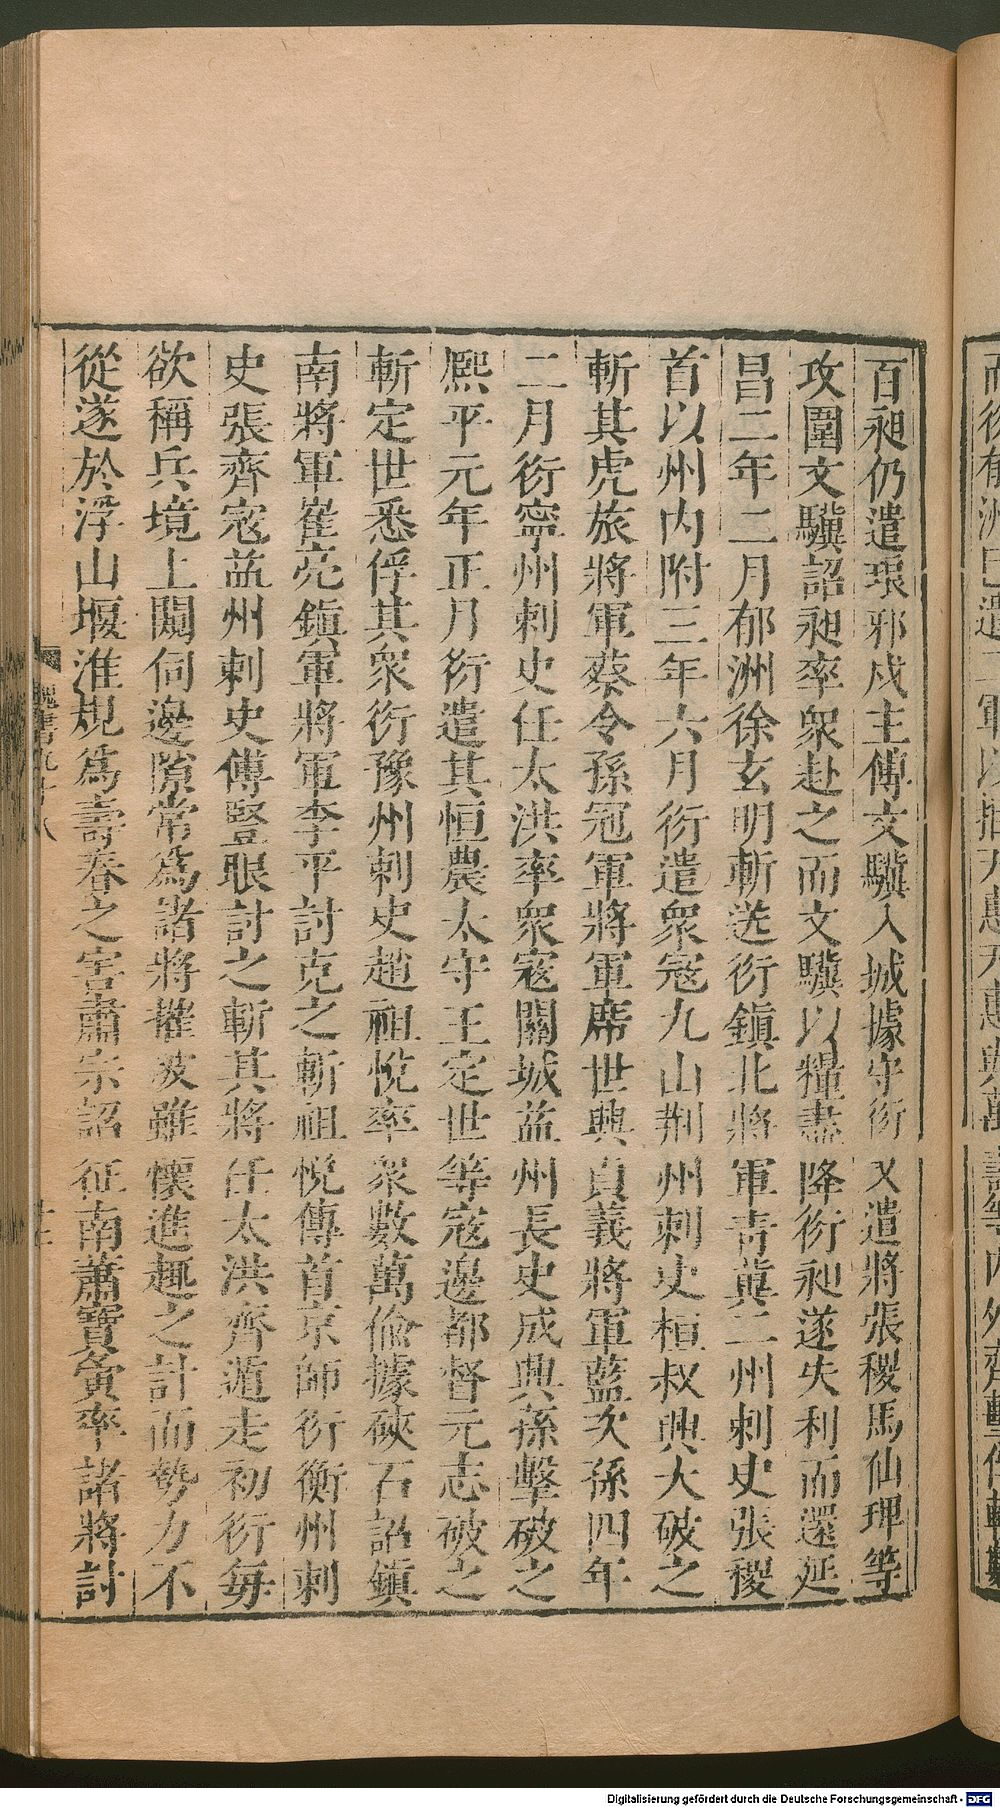 百昶仍遣琅邪戍主傅文驥入城據守衍又遣將張稷馬仙琕等
攻圍文驥詔昶率衆赴之而文驥以糧盡降衍昶遂失利而還延
昌二年二月郁洲徐玄明斬送衍鎮北將軍青冀二州刺史張稷
首以州内附三年六月衍遣衆寇九山荆州刺史桓叔興大破之
斬其虎旅將軍蔡令孫冠軍將軍席世興貞義將軍藍次孫四年
二月衍寧州刺史任太洪率衆寇關城益州長史成興孫擊破之
熈平元年正月衍遣其恒農太守王定世等寇邊都督元志破之
斬定世悉俘其衆衍豫州刺史趙祖悅率衆數萬偸據硤石詔鎮
南將軍崔亮鎮軍將軍李平討克之斬祖悅傳首京師衍衡州刺
史張齊寇益州刺史傅豎眼討之斬其將任太洪齊遁走初衍每
欲稱兵境上闚伺邊隙常爲諸將摧破雖懷進趣之計而勢力不
從遂於浮山堰淮規爲壽春之害肅宗詔征南蕭寶夤率諸將討
魏書九十八
Digitalisierung gefördert durch die Deutsche Forschungsgemeinschaft - DFG